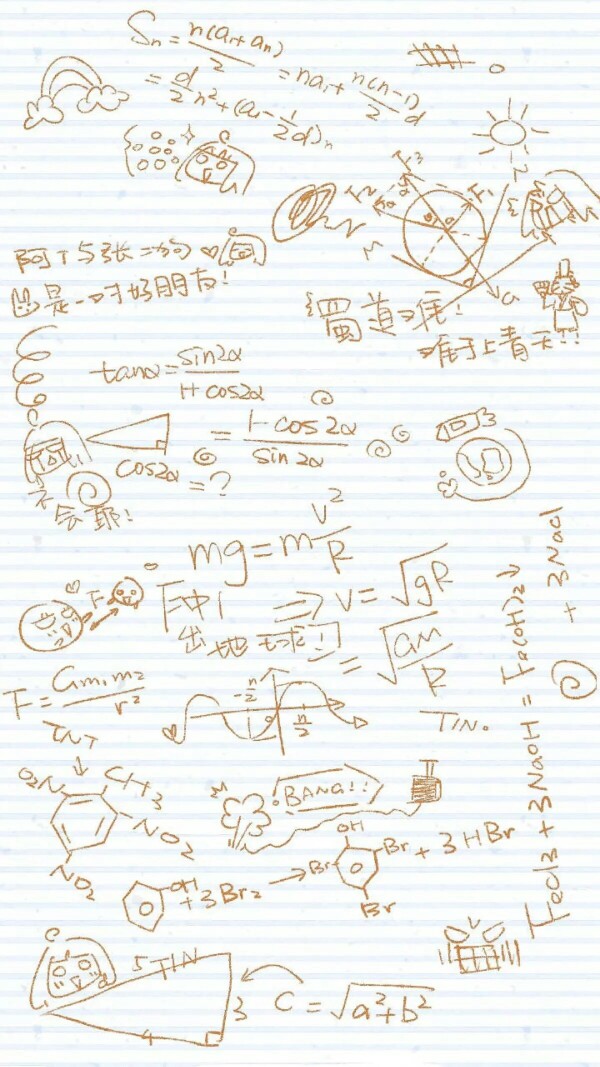 Sn = n(a₁+an)/2 = na₁ + n(n-1)/2 d
= d/2 n² + (a₁ - 1/2 d)n
F₃
F₂
F₁
阿丁与张二狗
是一对好朋友!
蜀道难!
难于上青天!!
tanα = sin2α/1+cos2α
= 1-cos2α/sin2α
cos2α = ?
不会耶!
mg = m v²/R
F
⇒ v = √gR
冲出地球!
= √GM/R
F = Gm₁m₂/r²
-π/2
π/2
TIN.
TNT
O₂N
CH₃
NO₂
NO₂
BANG!!
T
OH
+ 3Br₂ →
OH
Br
Br
Br
+ 3HBr
FeCl3 + 3NaOH = Fe(OH)₂↓ + 3NaCl
5 TIN
3
4
C = √a²+b²